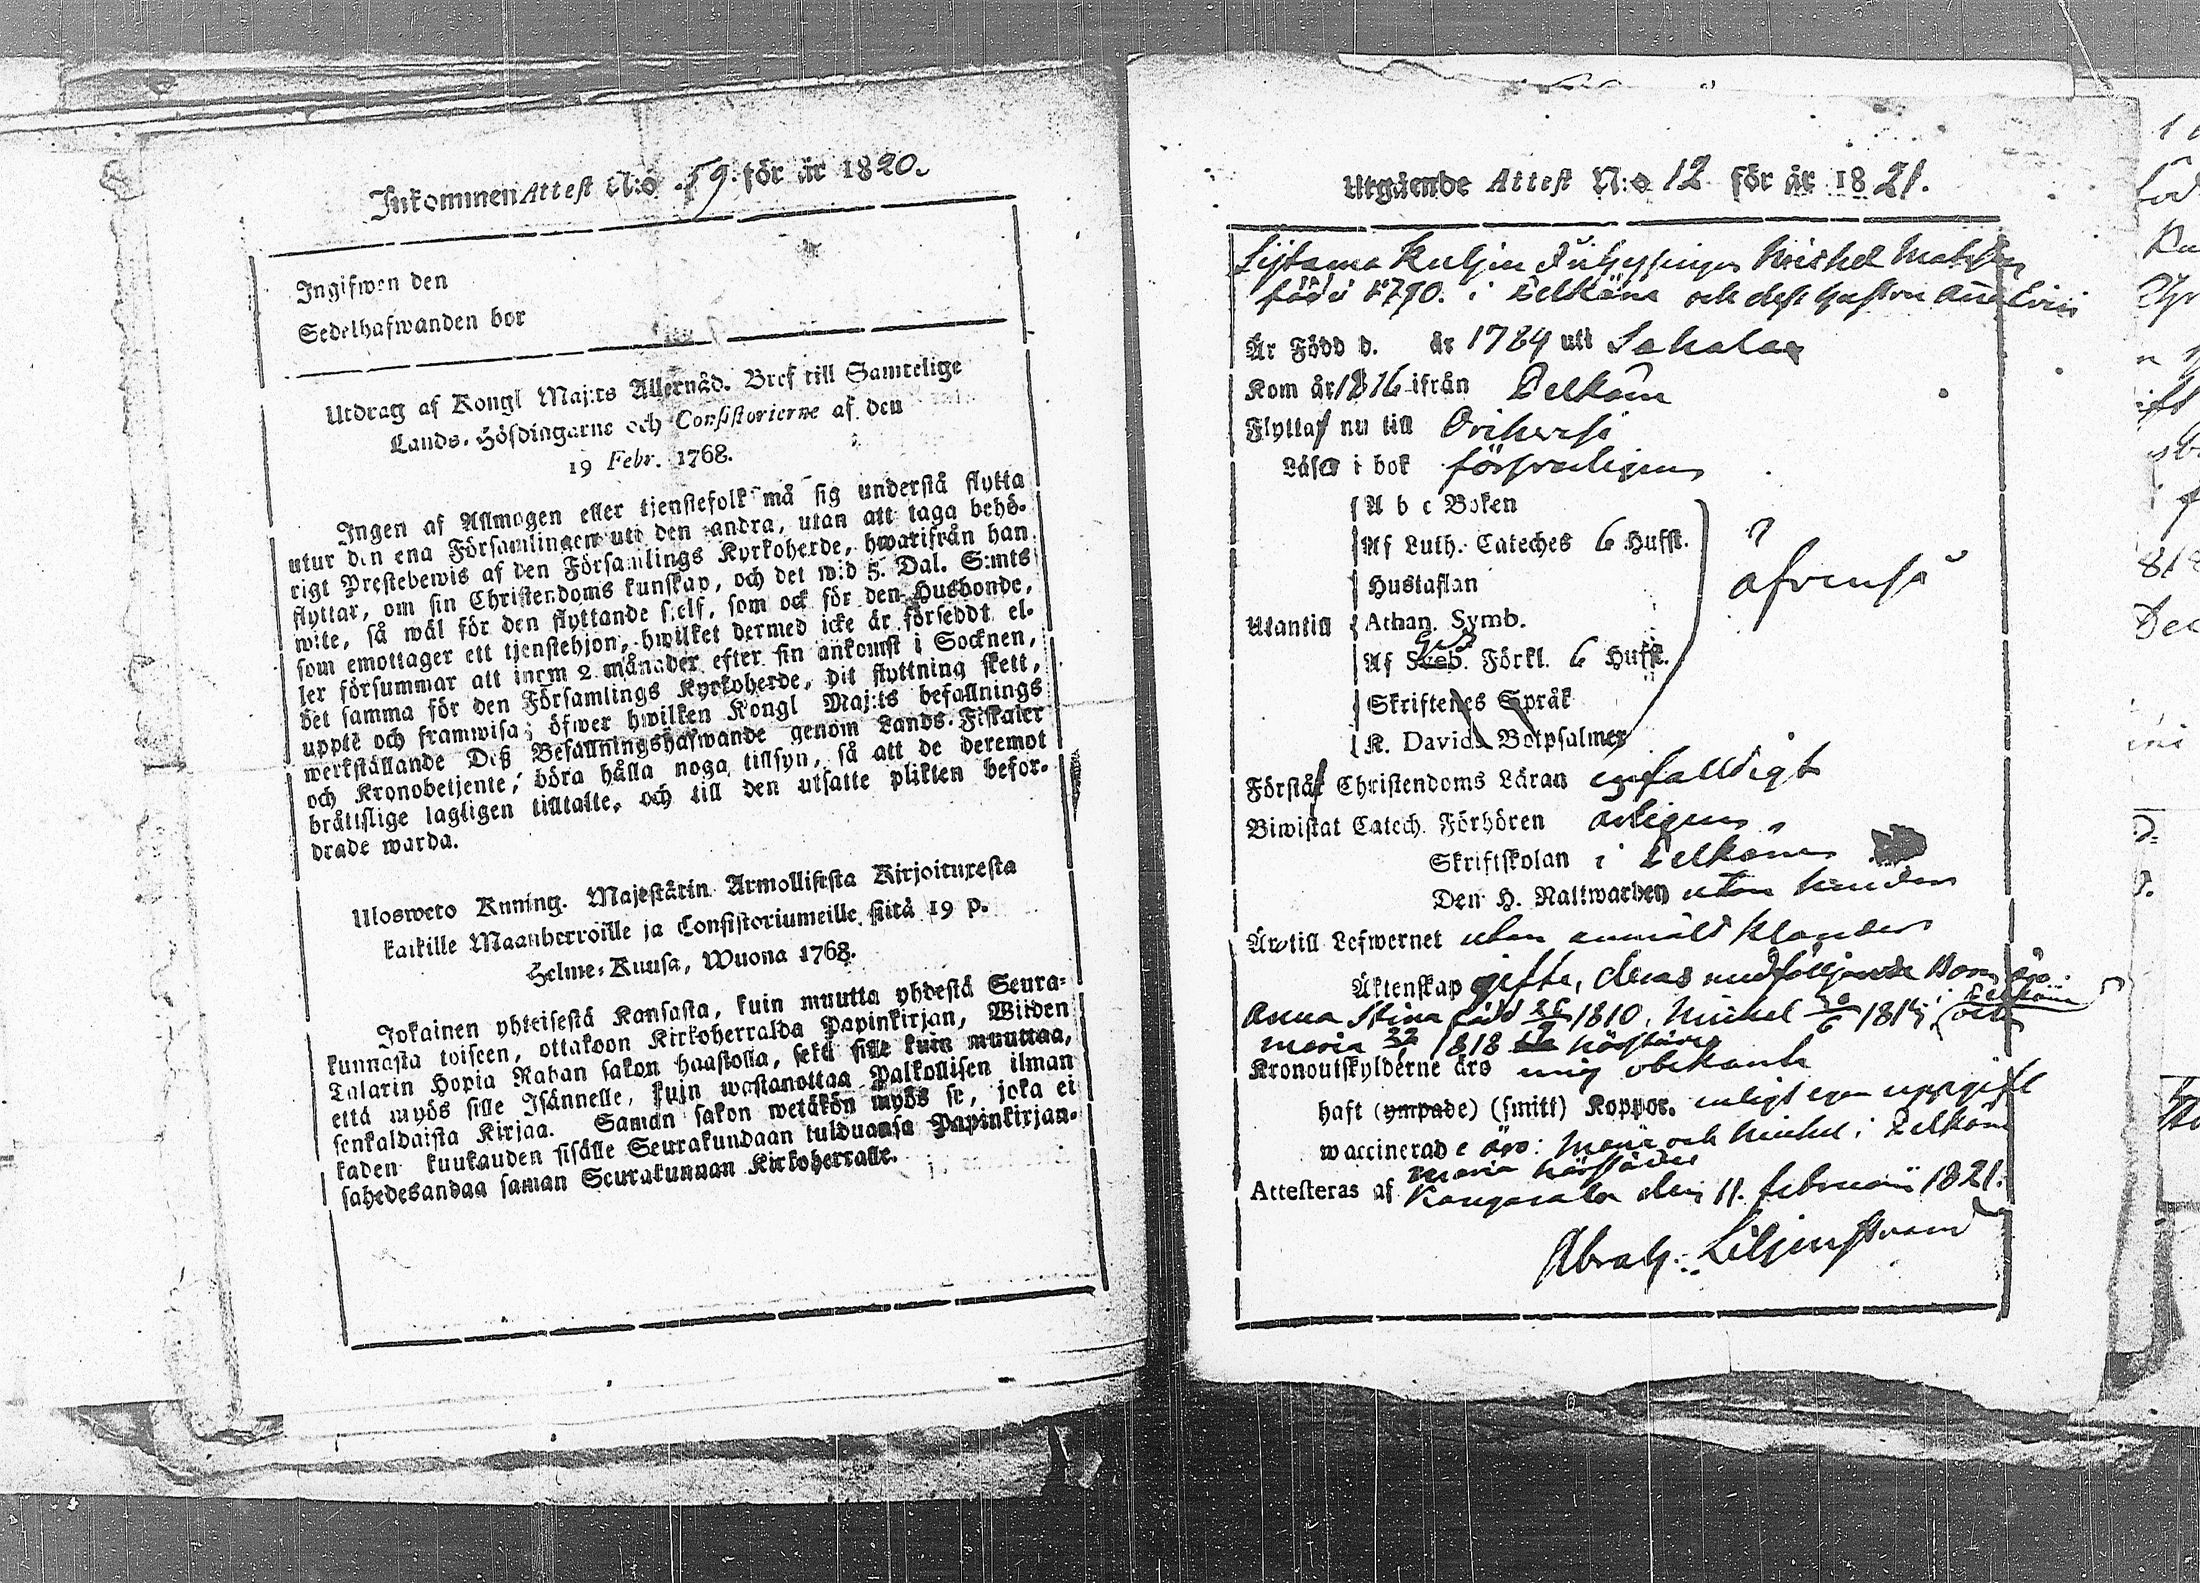 Inkommen Attest N:o 59. för år 1820.
Ingifwen den
Sedelhafwanden bor
Utdrag af Kongl Maj:ts Allernåd. Bref till Samtelige
Lands-Höfdingarne och Consistorierne af den
19 Febr. 1768.
Ingen af Allmogen eller tjenstefolk må sig understå flytta
utur den ena Församlingen uti den andra, utan att taga behö-
rigt Prestebewis af den Församlings Kyrkoherde, hwarifrån han
flyttar, om sin Christendoms kunskap, och det wid 5. Dal. S:mts
wite, så wäl för den flyttande sjelf, som ock för den Husbonde,
som emottager ett tjenstehjon, hwilket dermed icke är försedt el-
ler försummar att inom 2 månader efter sin ankomst i Socknen,
det samma för den Församlings Kyrkoherde, dit flyttning skett,
uppte och framwisa; öfwer hwilken Kongl Maj:ts befallnings
werkställande Deß Befallningshafwande genom Lands-Fiskaler
och Kronobetjente, böra hålla noga tillsyn, så att de deremot
bråttslige lagligen tilltalte, och till den utsatte plikten befor-
drade warda.
Ulosweto Kuning. Majestätin Armollisesta Kirjoituxesta
kaikille Maanherroille ja Consistoriumeille siitä 19 p.
Helme-Kuusa, Wuona 1768.
Jokainen yhteisestä Kansasta, kuin muutta yhdestä Seura-
kunnasta toiseen, ottakoon Kirkoherralda Papinkirjan, Wiiden
Talarin Hopia Rahan sakon haastolla, sekä sille kuin muuttaa,
että myös sille Isännelle, kuin wastanottaa Palkollisen ilman
senkaldaista Kirjaa. Saman sakon wetäkön myös se, joka ei
kaden kuukauden sisälle Seurakundaan tulduansa Papinkirjan-
sahedesandaa saman Seurakunnan Kirkoherralle.
Utgående Attest N:o 12 för år 1821.
Michel
född 1790. i och dess hustru Anna
Är Född d. år 1784 uti Sahala
Kom år 1816 ifrån Pelkäne
Flytta nu till Orihwesi
Läsa i bok försvarligen
A b c Boken
Af Luth. Cateches 6 Hufst.
Hustaflan
Utantill Athan. Symb.
Af Sveb. Förkl. 6 Hufst.
Skriftenes Språk
K. Davids Botpsalmer
äfvenså
Förstå Christendoms Läran enfalldigt
Biwistat Catech. Förhören årligen
Skriftskolan i Pelkäne
Den H. Nattwarden utan hinder
Äro till Lefwernet utan anmält klander
Äktenskap gifte, deras medföljande Barn äro:
Anna Stina född 1810, Michel 1814 i Pelkäne och
Maria 1818 härstädes
Kronoutskylderne äro mig obekante
haft (ympade) (smitt) Koppor. enligt egen uppgift
waccinerade äro: och Michel i Pelkäne
Maria härstädes
Attesteras af Kangasala den 11. Februarii 1821.
Abrah. Liljenstrand